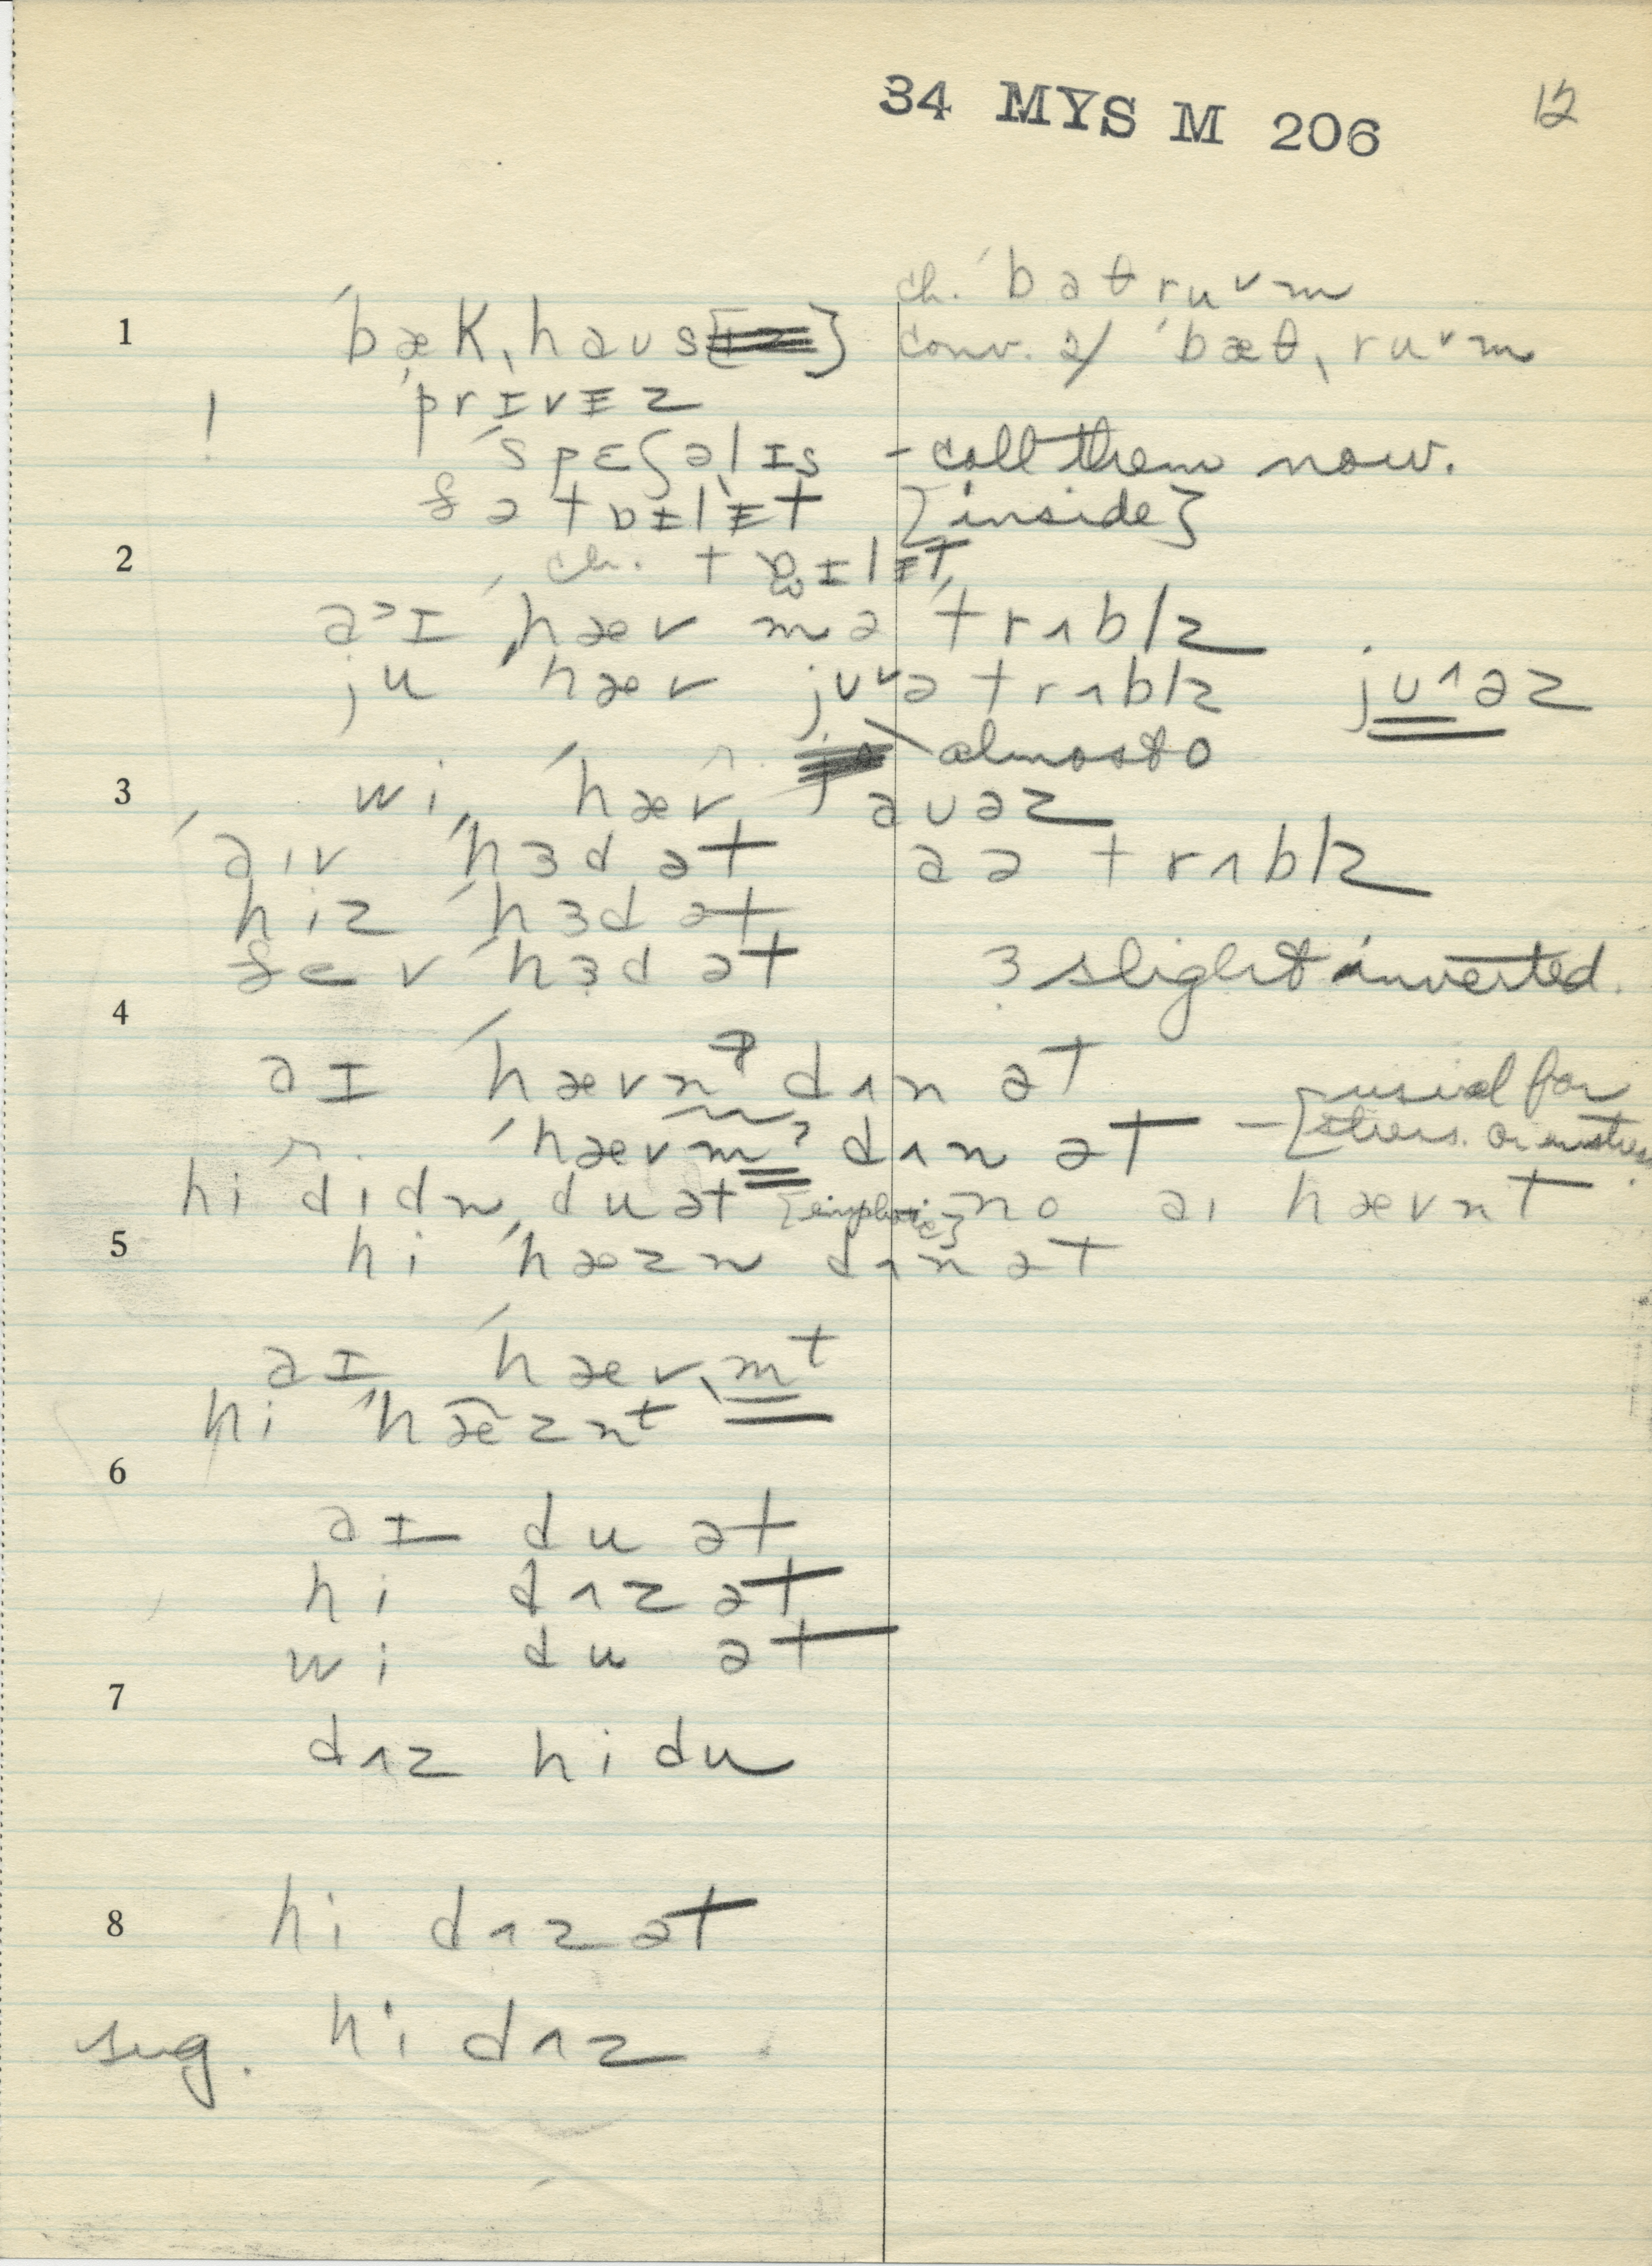 34 MYS M 206
12
ch. ˈbaθru˅m
1 ˈbæk,haus conv. a/ ˈbæθ,ru˅m
! ˈprɪvɪz
ˈspɛʃəlɪs - call them now.
ðə tɔɪlɪt [inside]
2 ch. tɔɪlɪt
a˃ɪ ˈhæv mə ˈtrʌblz
ju ˈhæv ju˅ə trʌblz ju˄əz
almost o
3 wi ˈhæv auəz
aiv ˈhɜd ət aə trʌblz
hiz ˈhɜd ət
ðev ˈhɜd ət ɜ slight inverted.
4
aɪ ˈhævnʔ dʌn ət
r. ˈhævmʔ dʌn ət - [usual for stress. or unstress.
hi didn duət [emphatic] no ai hævnt
5 hi ˈhæzn dʌn ət
aɪ ˈhævmt
hi ˈhæznt
6
aɪ du ət
hi dʌz ət
wi du ət
7
dʌz hi du
8 hi dʌz ət
sug. hi dʌz